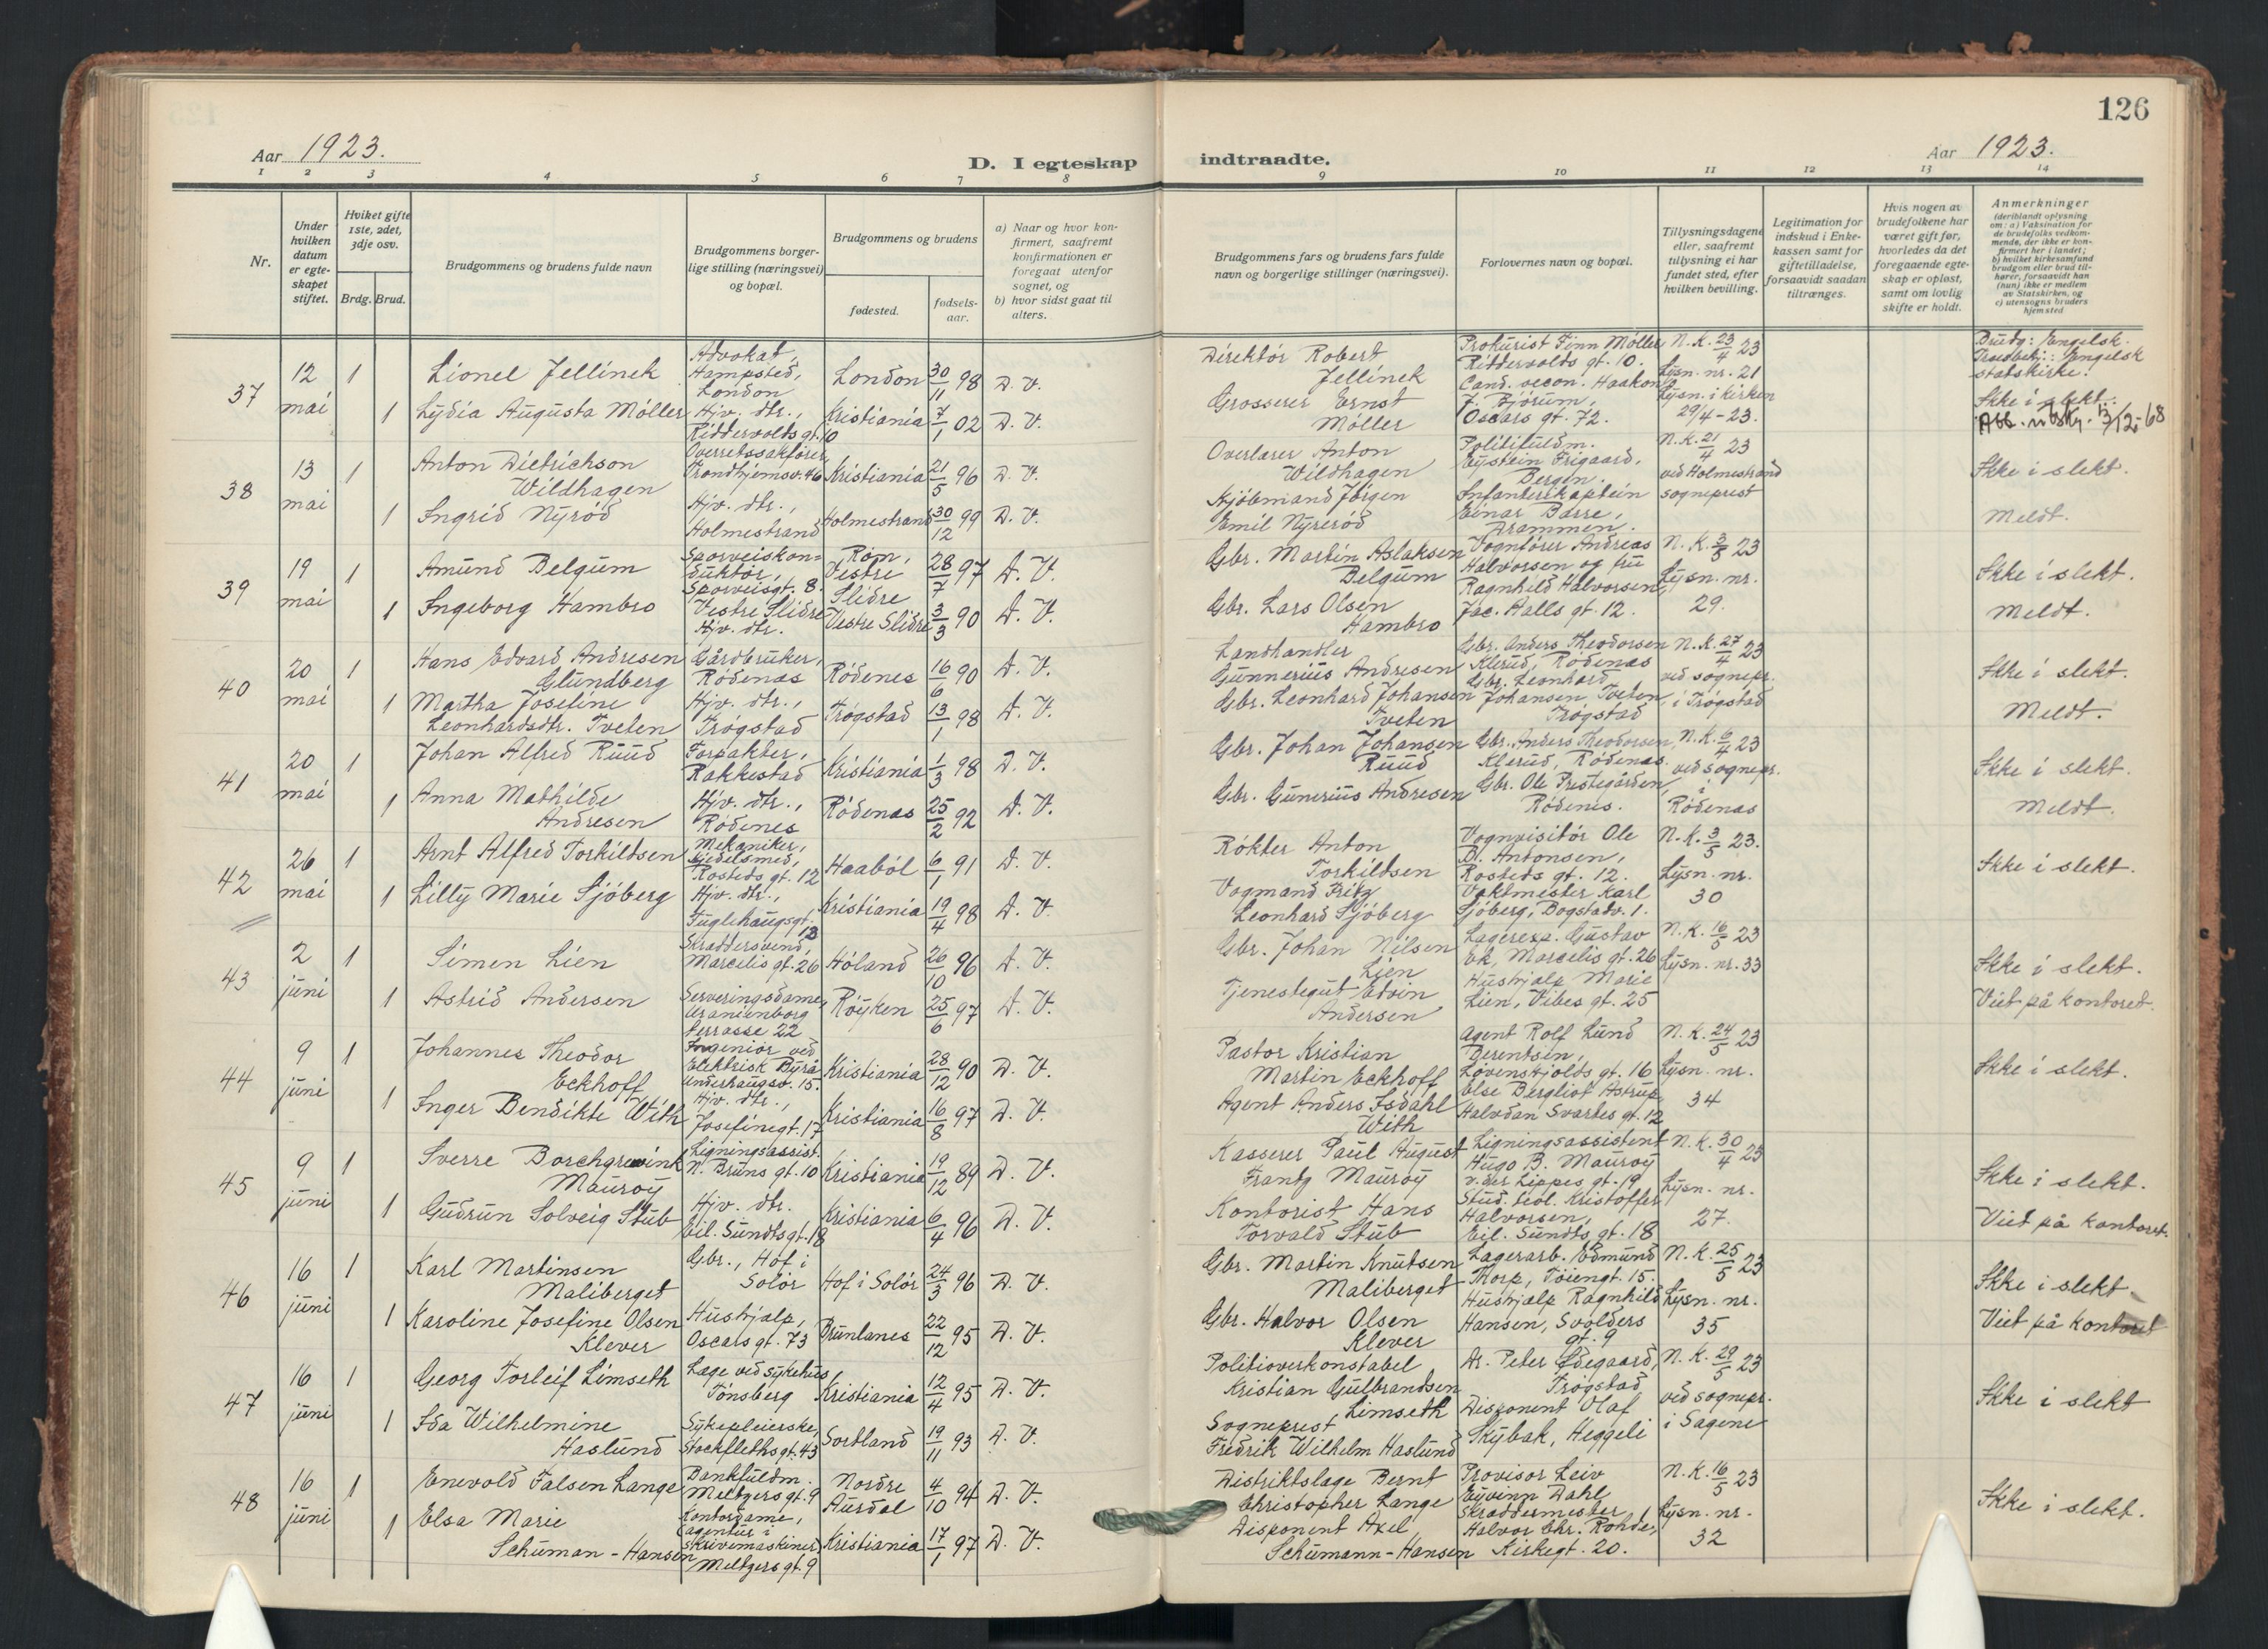 126
Aar 1923.
D. I egteskap indtraadte.
Aar 1923.
1 2 3 4 5 6 7 8 9 10 11 12 13 14
Nr.
Under hvilken datum er egteskapet stiftet.
Hvilket gifte 1ste, 2det, 3dje osv.
Brdg. Brud.
Brudgommens og brudens fulde navn
Brudgommens borgerlige stilling (næringsvei) og bopæl.
Brudgommens og brudens
fødested.
fødselsaar.
a) Naar og hvor konfirmert, saafremt konfirmationen er foregaat utenfor sognet, og
b) hvor sidst gaat til alters.
Brudgommens fars og brudens fars fulde navn og borgerlige stillinger (næringsvei).
Forlovernes navn og bopæl.
Tillysningsdagene eller, saafremt tillysning ei har fundet sted, efter hvilken bevilling.
Legitimation for indskud i Enkekassen samt for giftetilladelse, forsaavidt saadan tiltrænges.
Hvis nogen av brudefolkene har været gift før, hvorledes da det foregaaende egteskap er opløst, samt om lovlig skifte er holdt.
Anmerkninger
(deriblandt oplysning om: a) Vaksination for de brudefolks vedkommende, der ikke er konfirmert her i landet; b) hvilket kirkesamfund brudgom eller brud tilhører, forsaavidt han (hun) ikke er medlem av Statskirken, og c) utensogns bruders hjemsted
37 12 mai 1 Lionel Jellinek Advokat, Hampsted, London London 30/11 98 D. V. Direktör Robert Jellinek Prokurist Finn Möller Riddervolds gt. 10. N. K. 23/4 23 Lysn. nr. 21 Brudg: Engelsk. Engelsk statskirke.
1 Lydia Augusta Möller Hjv. dtr., Riddervolds gt. 10 Kristiania 7/1 02 D. V. Grosserer Ernst Möller Cand. oecon. Haakon J. Bjórum, Oscars gt. 72. Lysn. i kirken 29/4-23. Ikke i slekt.
38 13 mai 1 Anton Dietrichson Wildhagen Overretssakförer, Trondhjemsv. 46 Kristiania 21/5 96 D. V. Overlærer Anton Wildhagen Politifuldm. Eystein Frigaard, Bergen. N. K. 21/4 23 ved Holmestrand sogneprest Ikke i slekt.
1 Ingrid Nyröd Hjv. dtr., Holmestrand Holmestrand 30/12 99 D. V. Kjöbmand Jörgen Emil Nyreröd Infanterikaptein Einar Barre, Drammen. Meldt.
39 19 mai 1 Amund Belgum Sporveiskonduktör, Sporveisgt. 8. Røn, Vestre Slidre 28/7 97 D. V. Gbr. Martin Aslaksen Belgum Vognförer Andreas Halvorsen og fru N. K. 3/5 23 Lysn. nr. 29. Ikke i slekt.
1 Ingeborg Hambro Vestre Slidre Hjv. dtr. Vestre Slidre 3/3 90 D. V. Gbr. Lars Olsen Hambro Ragnhild Halvorsen, Jac. Aalls gt. 12. Meldt.
40 20 mai 1 Hans Edvard Andresen Glundberg Gårdbruker, Rödenæs Rödenes 16/6 90 D. V. Landhandler Gunnerius Andresen Gbr. Anders Theodorsen Klerud, Rödenæs N. K. 27/4 23 ved sognepr. i Trøgstad Ikke i slekt.
1 Martha Joseline Leonhardsdtr. Tveten Hjv. dtr., Trögstad Trögstad 13/1 98 D. V. Gbr. Leonhard Johansen Tveten Gbr. Leonhard Johansen Tveten, Trögstad Meldt.
41 20 mai 1 Johan Alfred Ruud Forpakter, Rakkestad Kristiania 1/3 98 D. V. Gbr. Johan Johansen Ruud Gbr. Anders Theodorsen Klerud, Rödenæs. N. K. 6/4 23 ved sognepr. i Rödenæs Ikke i slekt.
1 Anna Mathilde Andresen Hjv. dtr., Rödenes Rödenæs 25/2 92 D. V. Gbr. Gunerius Andresen Gbr. Ole Prestegården, Rödenes. Meldt.
42 26 mai 1 Arnt Alfred Torkildsen Mekaniker, Kjedelsmed, Rosteds gt. 12 Haaböl 6/1 91 D. V. Rökter Anton Torkildsen Vognvisitör Ole Bl. Antonsen, Rosteds gt. 12. N. K. 3/5 23. Lysn. nr. 30 Ikke i slekt.
1 Lilly Marie Sjöberg Hjv. dtr., Fuglehaugsgt. 13 Kristiania 19/4 98 D. V. Vognmand Fritz Leonhard Sjöberg Vaktmester Karl Sjöberg, Bogstadv. 1.
43 2 juni 1 Simen Lien Skræddersvend, Marcelis gt. 26 Höland 26/10 96 D. V. Gbr. Johan Nilsen Lien Lagerexp. Gustav Ek, Marcelis gt. 26 N. K. 16/5 23 Lysn. nr. 33 Ikke i slekt.
1 Astrid Andersen Serveringsdame, Uranienborg terrasse 22 Röyken 25/6 97 D. V. Tjenestegut Edvin Andersen Hushjælp Marie Lien, Vibes gt. 25 Viet på kontoret.
44 9 juni 1 Johannes Theodor Eckhoff Ingeniör ved Elektrisk Byrå Underhaugsv. 15. Kristiania 28/12 90 D. V. Pastor Kristian Martin Eckhoff Agent Rolf Lund Berentsen, Lövenskjolds gt. 16 N. K. 24/5 23 Lysn. nr. 34 Ikke i slekt.
1 Inger Bendikte With Hjv. dtr., Josefinegt. 17 Kristiania 16/8 97 D. V. Agent Anders Isdahl With Else Bergliot Astrup, Halvdan Svartes gt. 12
45 9 juni 1 Sverre Borchgrevink Mauroy Ligningsassist. N. Bruns gt. 10 Kristiania 19/12 89 D. V. Kasserer Paul August Frantz Mauroy Ligningsassistent Hugo B. Mauroy v. der Lippes gt. 19 N. K. 30/4 23 Lysn. nr. 27. Ikke i slekt.
1 Gudrun Solveig Stub Hjv. dtr. Eil. Sundtsgt. 18 Kristiania 6/4 96 D. V. Kontorist Hans Torvald Stub Stud. teol. Kristoffer Halvorsen, Eil. Sundts gt. 18 Viet på kontoret.
46 16 juni 1 Karl Martinsen Maliberget Gbr., Hof i Solör Hof i Solör 24/3 96 D. V. Gbr. Martin Knutsen Maliberget Lagerarb. Edmund Thorp, Töiengt. 15. N. K. 25/5 23 Lysn. nr. 35 Ikke i slekt.
1 Karoline Josefine Olsen Klever Hushjælp, Oscars gt. 73 Brunlanes 22/12 95 D. V. Gbr. Halvor Olsen Klever Hushjælp Ragnhild Hansen, Svolders gt. 9 Viet på kontoret
47 16 juni 1 Georg Torleif Limseth Læge ved sykehus, Tönsberg Kristiania 12/4 95 D. V. Politioverkonstabel Kristian Gulbrandsen Limseth Dr. Peter Ødegaard, Trögstad N. K. 29/5 23 ved sognepr. i Sagene Ikke i slekt
1 Ida Wilhelmine Haslund Sykepleierske, Stockfleths gt. 43 Sortland 19/11 93 D. V. Sogneprest Fredrik Wilhelm Haslund Disponent Olaf Skybak, Heggeli
48 16 juni 1 Enevold Falsen Lange Bankfuldm. Meltzers gt. 9 Nordre Aurdal 4/10 94 D. V. Distriktslæge Bernt Christopher Lange Provisor Leiv Eyvinn Dahl N. K. 16/5 23 Lysn. nr. 32 Ikke i slekt.
1 Elsa Marie Schuman-Hansen Kontordame, (agentur i skrivemaskiner) Meltzers gt. 9 Kristiania 17/1 97 D. V. Disponent Axel Schumann-Hansen Skræddermester Halvor Chr. Rohde, Kirkegt. 20.